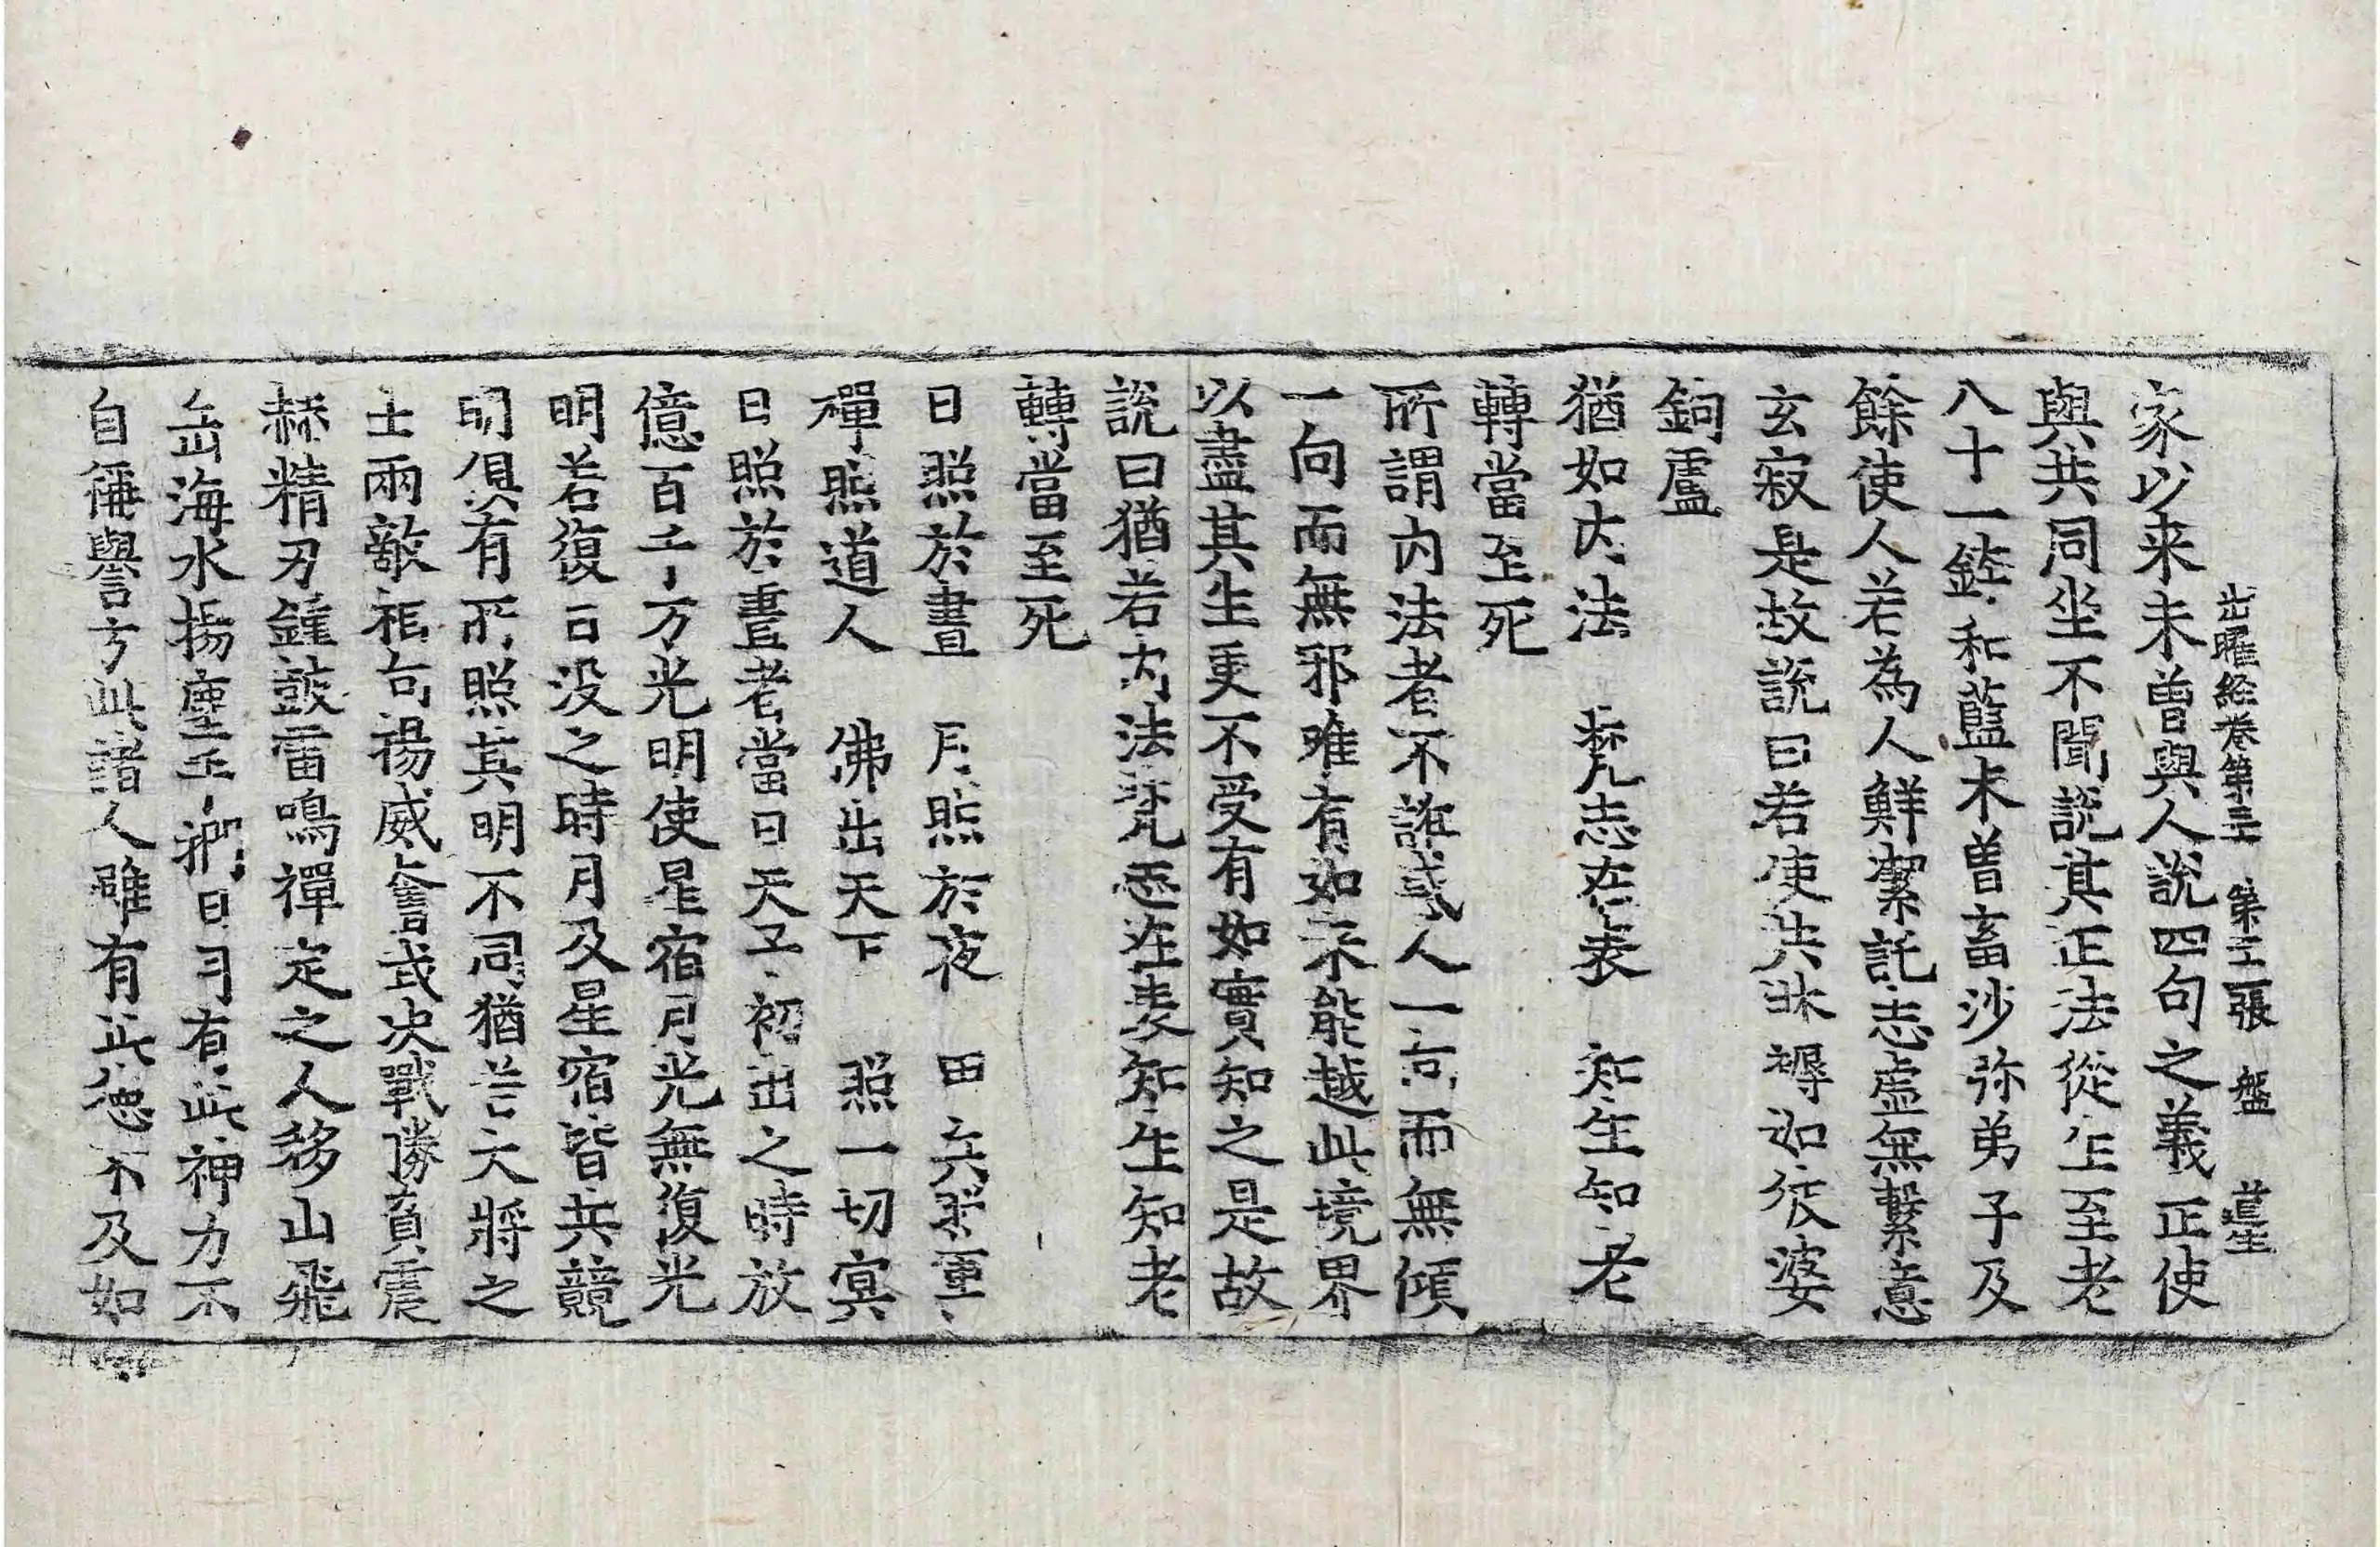 出曜経卷第三 第三張 盤 道生
家以来未曾與人說四句之義正使
與共同坐不聞說其正法從生至老
八十一錢和藍未曾畜沙弥弟子及
餘使人若為人鮮潔託志虛無繫意
玄寂是故說曰若使共牀褥如彼婆
鉤盧
猶如內法 梵志在表 知生知老
轉當至死
所謂內法者不誑惑人一向而無傾
一向而無邪唯有如來能越此境界
以盡其生更不受有如實知之是故
說曰猶若內法梵志在表知生知老
轉當至死
日照於晝 月照於夜 甲兵照軍
禪照道人 佛出天下 照一切冥
日照於晝者當日天子初出之時放
億百千万光明使星宿月光無復光
明若復日没之時月及星宿皆共競
明俱有所照其明不同猶若大將之
士兩敵相向揚威奮武決戰勝負震
赫精刃鍾鼓雷鳴禪定之人移山飛
岳海水揚塵手捫日月有此神力不
自稱譽方此諸人雖有此德不及如